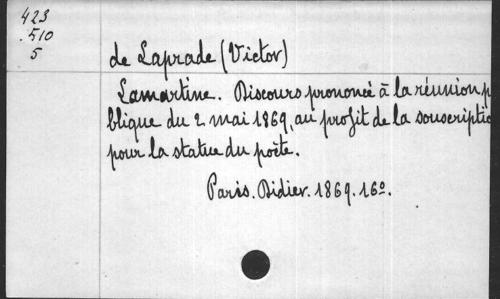 423
.510
5
de Laprade (Victor)
Lamartine. Discours prononcé à la réunion p
blique du 2 mai 1869, au profit de la souscriptio
pour la statue du poète.
Paris. Didier. 1869. 16º.